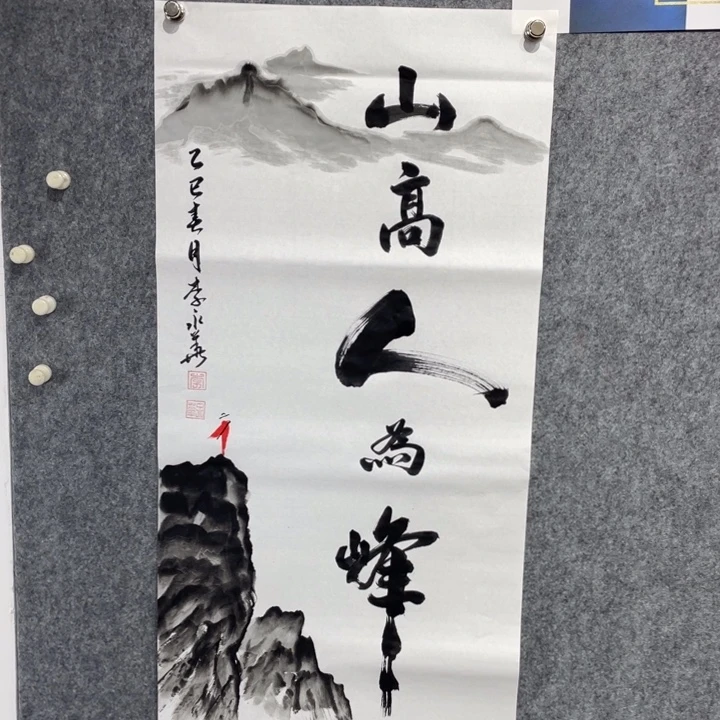 山高人為峰
乙巳春月李永華